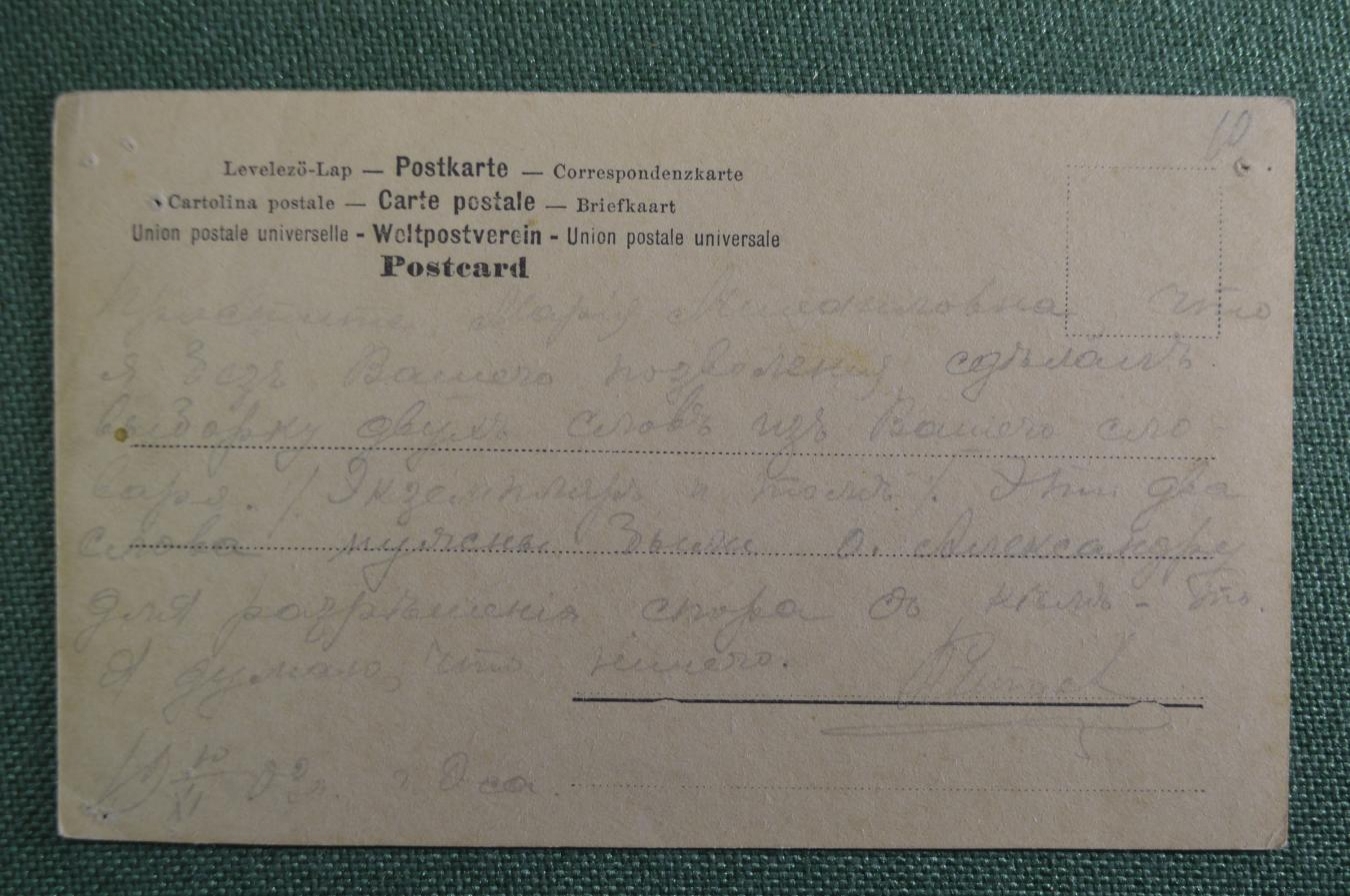 10
Levelezö-Lap — Postkarte — Correspondenzkarte
Cartolina postale — Carte postale — Briefkaart
Union postale universelle - Weltpostverein - Union postale universale
Postcard
Простите, Марія Михаиловна, что
я безъ Вашего позволенія сдѣлалъ
выборку двухъ словъ изъ Вашего сло-
варя. / Экземпляръ и томъ /. Эти два
слова нужны были о. Александру
для разрѣшенія спора съ кѣмъ-то.
Я думаю, что ничего.
10/XI 02г.